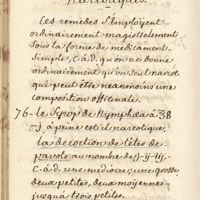 Narcotiques.
Les remedes s'employent
ordinairement magistralement
sous la forme de medicament
simple, c.a.d. qu'on ne donne
ordinairement qu'un seul narcot
qui peut être neanmoins une
composition officinale.
76 - le syrop de Nymphæa à ℥β
℥j, à peine est-il narcotique.
la decoction de têtes de
pavots au nombre de j-ij-iij.
c.a.d. une mediocre, une grosse
deux petites, deux moyennes
jusqu'à trois petites.